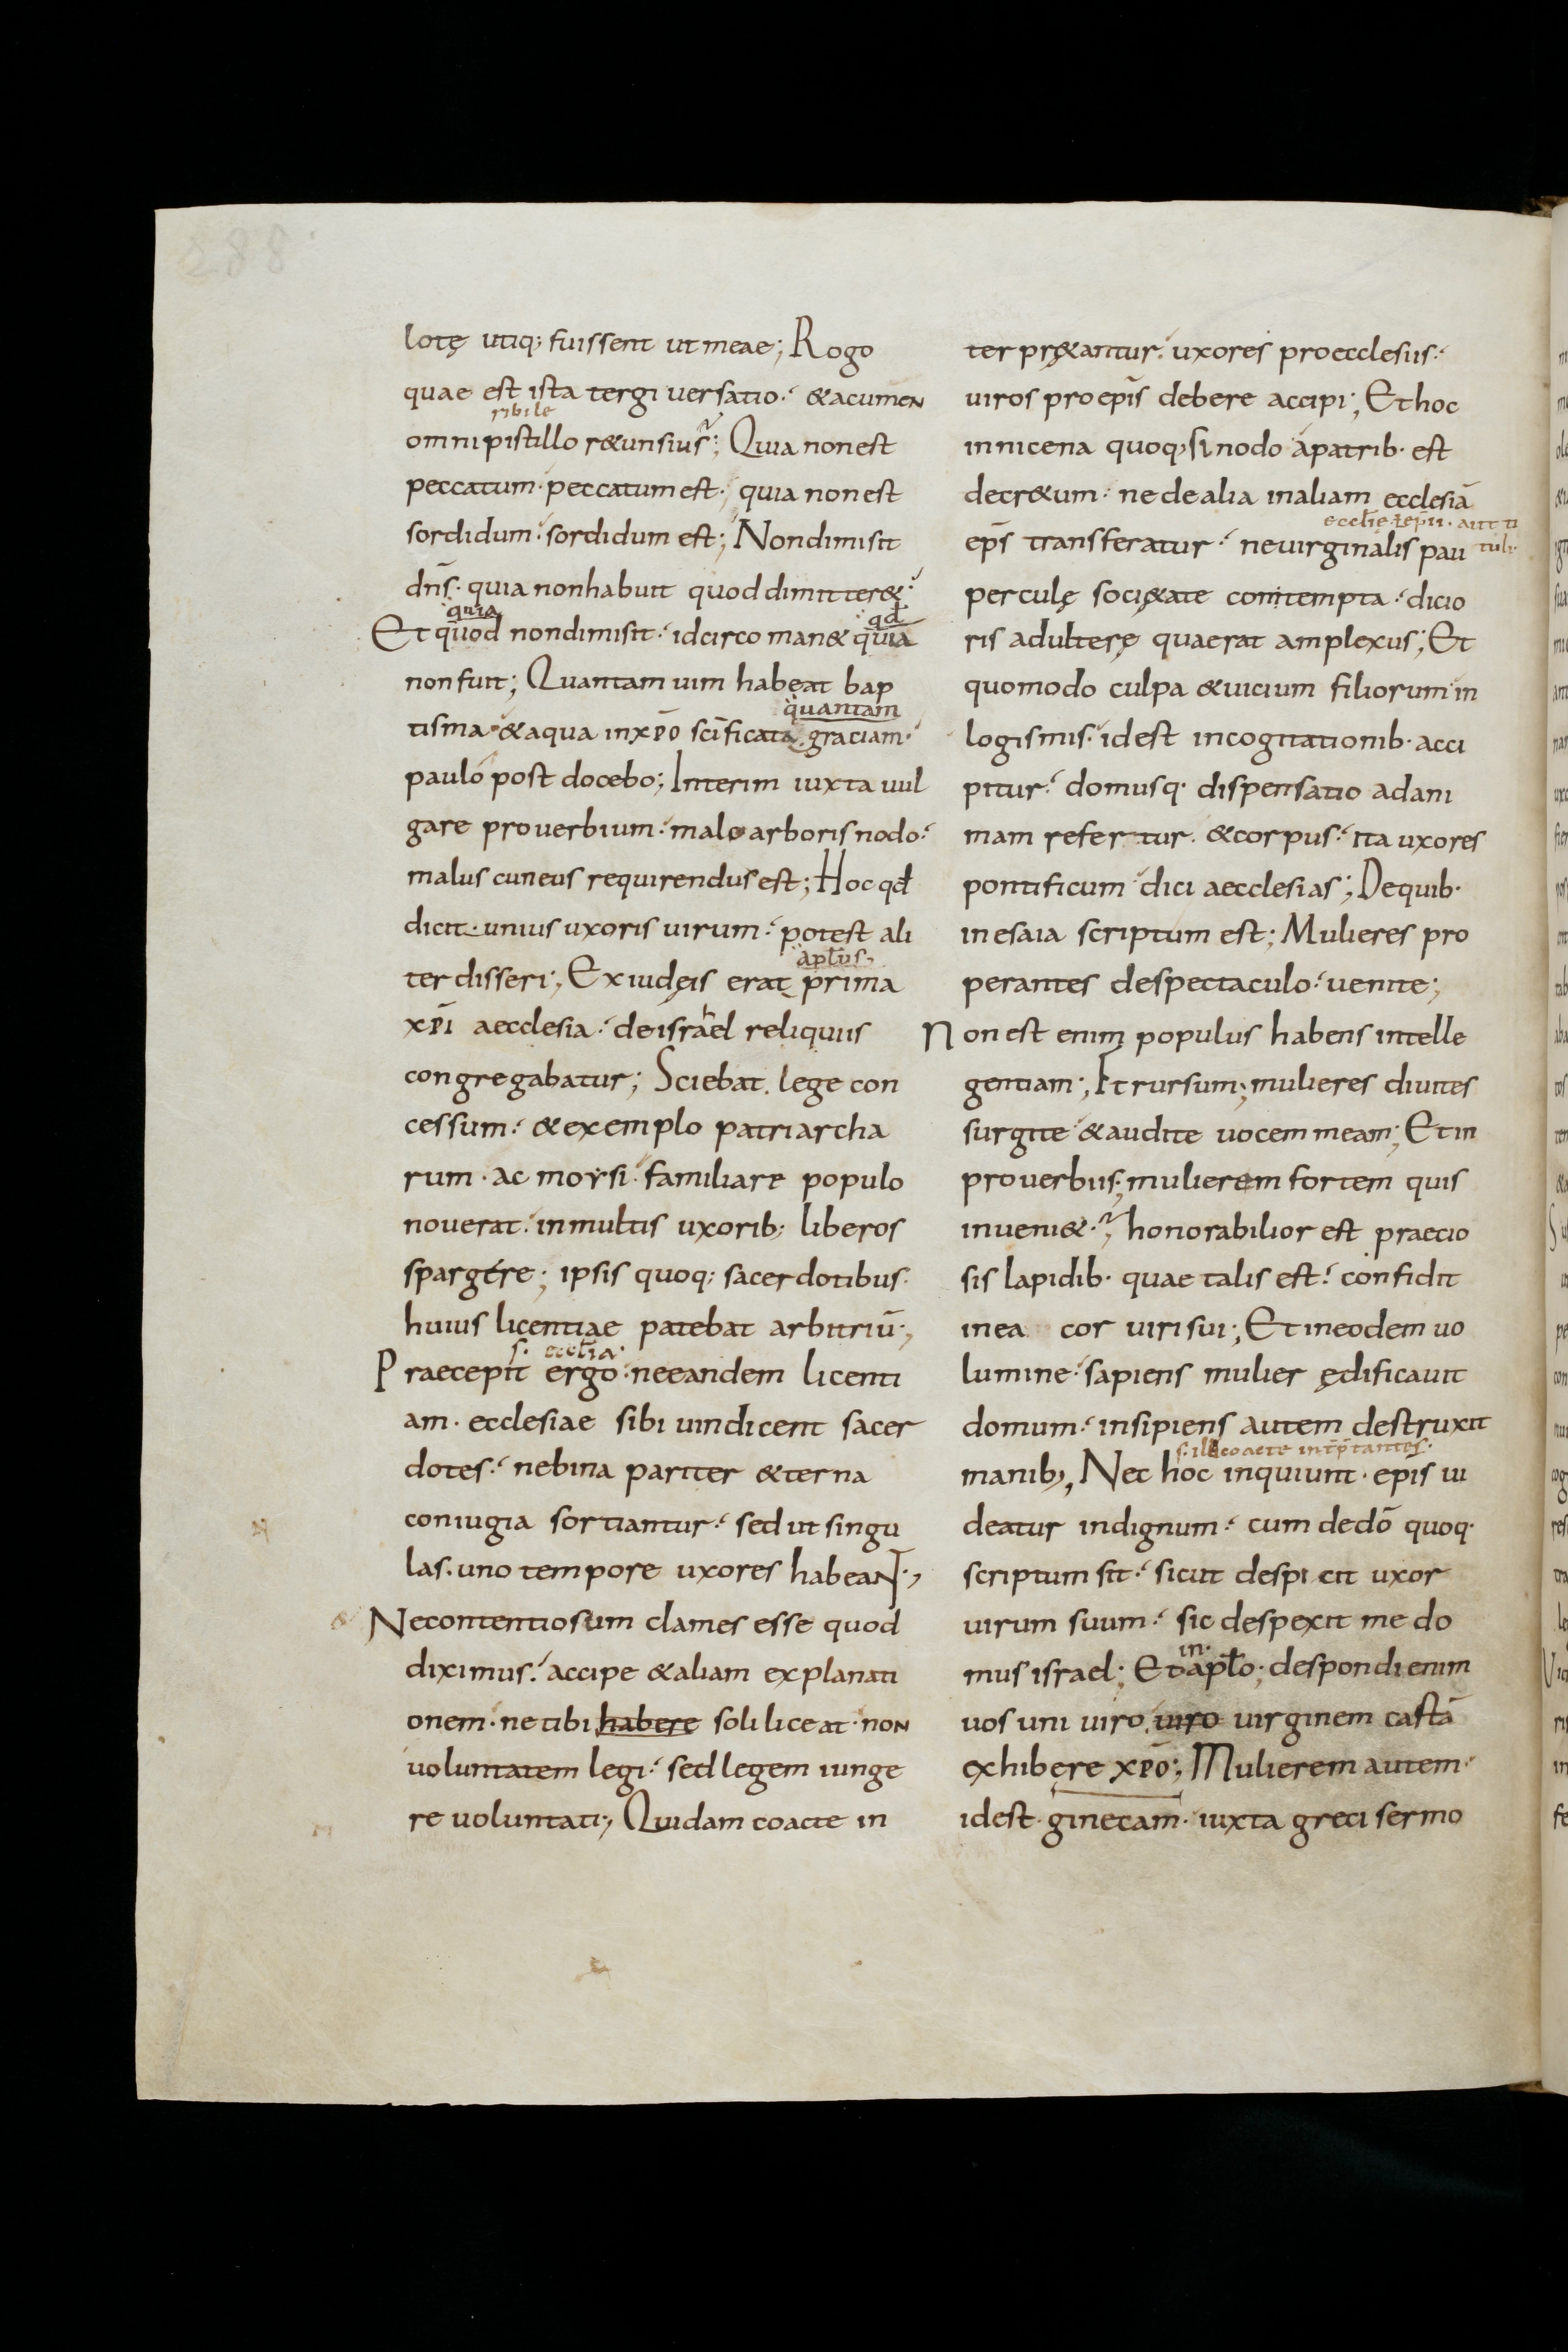 lotę utiq; fuissent ut meae; Rogo
quae est ista tergi uersatio. &acumen
ribile
omni pistillo r&unsius; Quia non est
peccatum. peccatum est; quia non est
sordidum. sordidum est; Non dimisit
dn̄s. quia non habuit quod dimitter&.
quia qđ
Et quod non dimisit. idcirco man& quia
non fuit; Quantam uim habeat bap
quantam
tisma. &aqua in xp̄o sc̄ificata. graciam.
paulo post docebo; Interim iuxta uul
gare prouerbium. malo arboris nodo.
malus cuneus requirendus est; Hoc qđ
dicit. unius uxoris uirum. potest ali
apl̄us
ter disseri; Ex iudęis erat prima
xp̄i aecclesia. de israhel reliquiis
congregabatur; Sciebat lege con
cessum. &exemplo patriarcha
rum. ac moysi. familiare populo
nouerat. in multis uxorib; liberos
spargere; ipsis quoq; sacerdotibus.
huius licentiae patebat arbitriū;
s. eccl̄ia.
Praecepit ergo. ne eandem licenti
am. ecclesiae sibi uindicent sacer
dotes. ne bina pariter &terna
coniugia sortiantur. sed ut singu
las. uno tempore uxores habeant;
Ne contentiosum clames esse quod
diximus. accipe &aliam explanati
onem. ne tibi habere soli liceat. non
uoluntatem legi. sed legem iunge
re uoluntati; Quidam coacte in
ter pr&antur. uxores pro ecclesiis.
uiros pro ep̄is debere accipi; Et hoc
in nicena quoq; sinodo a patrib. est
decr&um. ne de alia in aliam ecclesiā
ep̄s transferatur. ne uirginalis pau
perculę soci&ate contempta. dicio
ris adulterę quaerat amplexus; Et
quomodo culpa &uicium filiorum in
logismis. id est in cogitationib. acci
pitur. domusq. dispensatio ad ani
mam refertur. &corpus. ita uxores
pontificum dici aecclesias; De quib.
in esaia scriptum est; Mulieres pro
perantes de spectaculo. uenite;
Non est enim populus habens intelle
gentiam; Et rursum; mulieres diuites
surgite &audite uocem meam; Et in
prouerbiis; mulierem fortem quis
inueni&; honorabilior est praecio
sis lapidib. quae talis est. confidit
in ea cor uiri sui; Et in eodem uo
lumine. sapiens mulier ędificauit
domum. insipiens autem destruxit
coacte int̄p̄tantes.
manib; Nec hoc inquiunt. ep̄is ui
deatur indignum. cum de dō quoq.
scriptum sit. sicut despicit uxor
uirum suum. sic despexit me do
in
mus israel; Et apl̄o; despondi enim
uos uni uiro uiro uirginem castā
exhibere xp̄o; Mulierem autem.
id est. ginecam. iuxta greci sermo